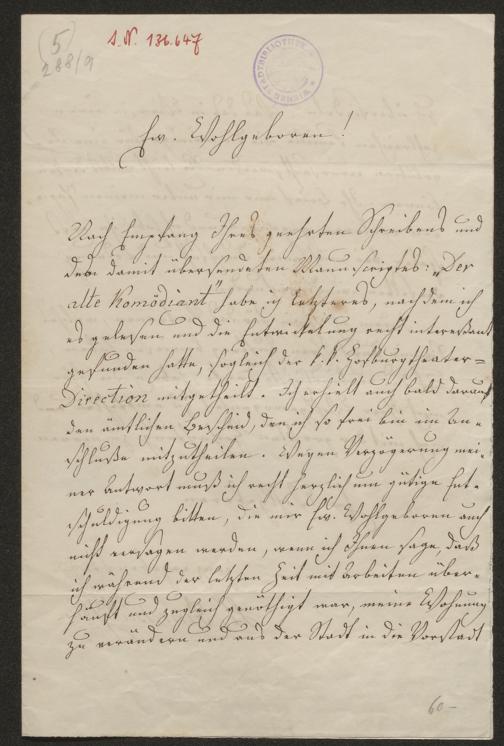 (5)
288/9
I.N. 136.647
WIENER STADTBIBLIOTHEK
Ew. Wohlgeboren!
Nach Empfang Ihres geehrten Schreibens und
des damit übersendeten Manuscriptes: „Der
alte Komödiant" habe ich letzteres, nachdem ich
es gelesen und die Entwickelung recht interessant
gefunden hatte, sogleich der k. k. Hofburgtheater-
Direction mitgetheilt. Ich erhielt auch bald darauf
den ämtlichen Bescheid, den ich so frei bin im An-
schluße mitzutheilen. Wegen Verzögerung mei-
ner Antwort muß ich recht herzlich um gütige Ent-
schuldigung bitten, die mir Ew. Wohlgeboren auch
nicht versagen werden, wenn ich Ihnen sage, daß
ich während der letzten Zeit mit Arbeiten über-
häuft und zugleich genöthigt war, meine Wohnung
zu verändern und aus der Stadt in die Vorstadt
60-